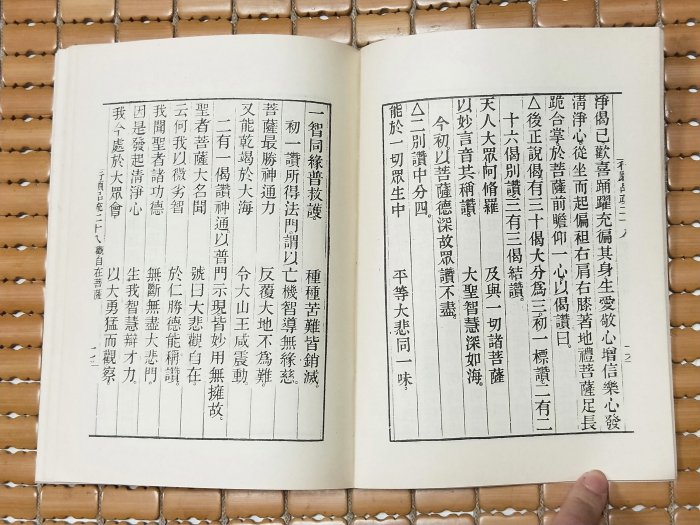 淨偈已歡喜踊躍充徧其身生愛敬心增信樂心發
清淨心從坐而起偏袒右肩右膝著地禮菩薩足長
跪合掌於菩薩前瞻仰一心以偈讚曰
△後正説偈有三十偈大分爲三初一標讚二有二
十六偈別讚三有三偈結讚。
天人大眾阿脩羅 及與一切諸菩薩
以妙言音共稱讚 大聖智慧深如海。
今初以菩薩德深故眾讚不盡。
△二別讚中分四。
能於一切眾生中 平等大悲同一味。
一智同緣普救護。 種種苦難皆銷滅。
初一讚所得法門謂以亡機智導無緣慈。
菩薩最勝神通力 反覆大地不爲難。
又能乾竭於大海 令大山王咸震動。
二有一偈讚神通以普門示現皆妙用無擁故。
聖者菩薩大名聞 號曰大悲觀自在。
云何我以微劣智 於仁勝德能稱讚。
我聞聖者諸功德 無斷無盡大悲門。
因是發起清淨心 生我智慧辯才力。
我今處於大眾會 以大勇猛而觀察
行願品疏二十八 觀自在菩薩